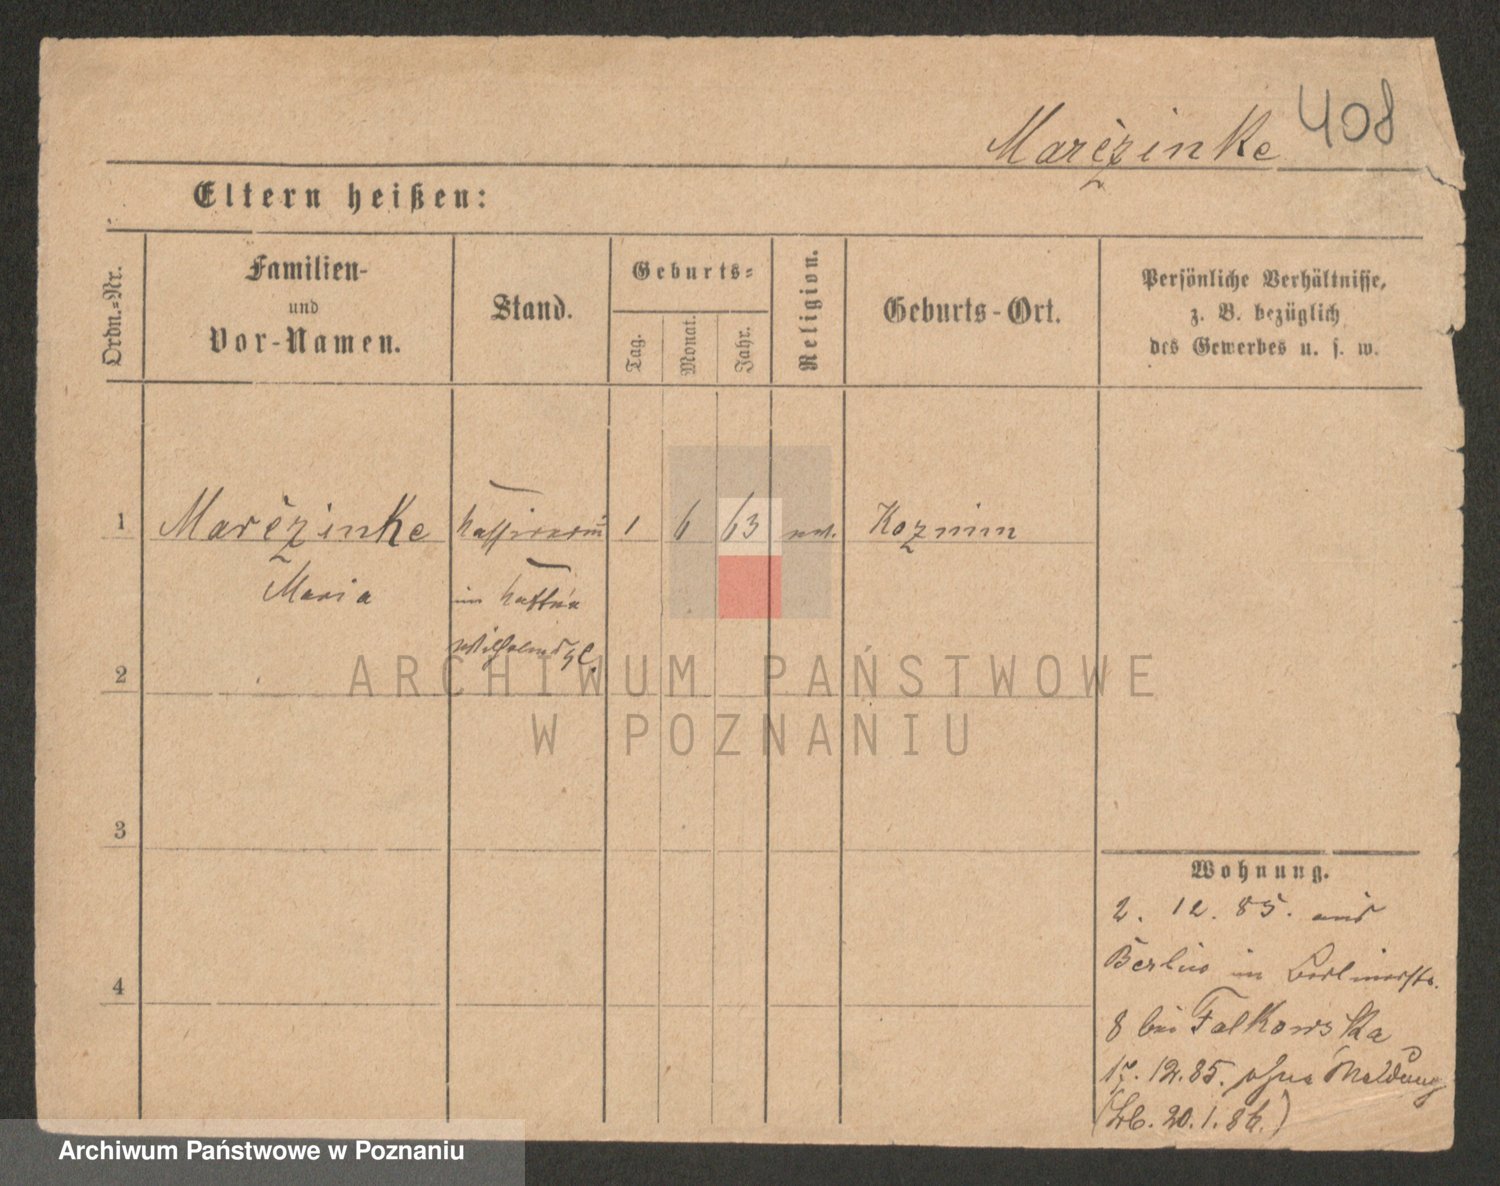 Marėzinke 408
Eltern heißen:
Ordn.=Nr.
Familien-
und
Vor-Namen.
Stand.
Geburts=
Tag.
Monat.
Jahr.
Religion.
Geburts-Ort.
Persönliche Verhältnisse,
z. B. bezüglich
des Gewerbes u. s. w.
1 Marėzinke 1 6 63 Kozmin
Maria
im
2
ARCHIWUM PAŃSTWOWE
W POZNANIU
3
Wohnung.
2. 12. 85. aus
Berlin in Berlinerstr.
4
8 bei Falkowska
17. 12. 85. ohne Meldung
20. 1. 86.)
Archiwum Państwowe w Poznaniu